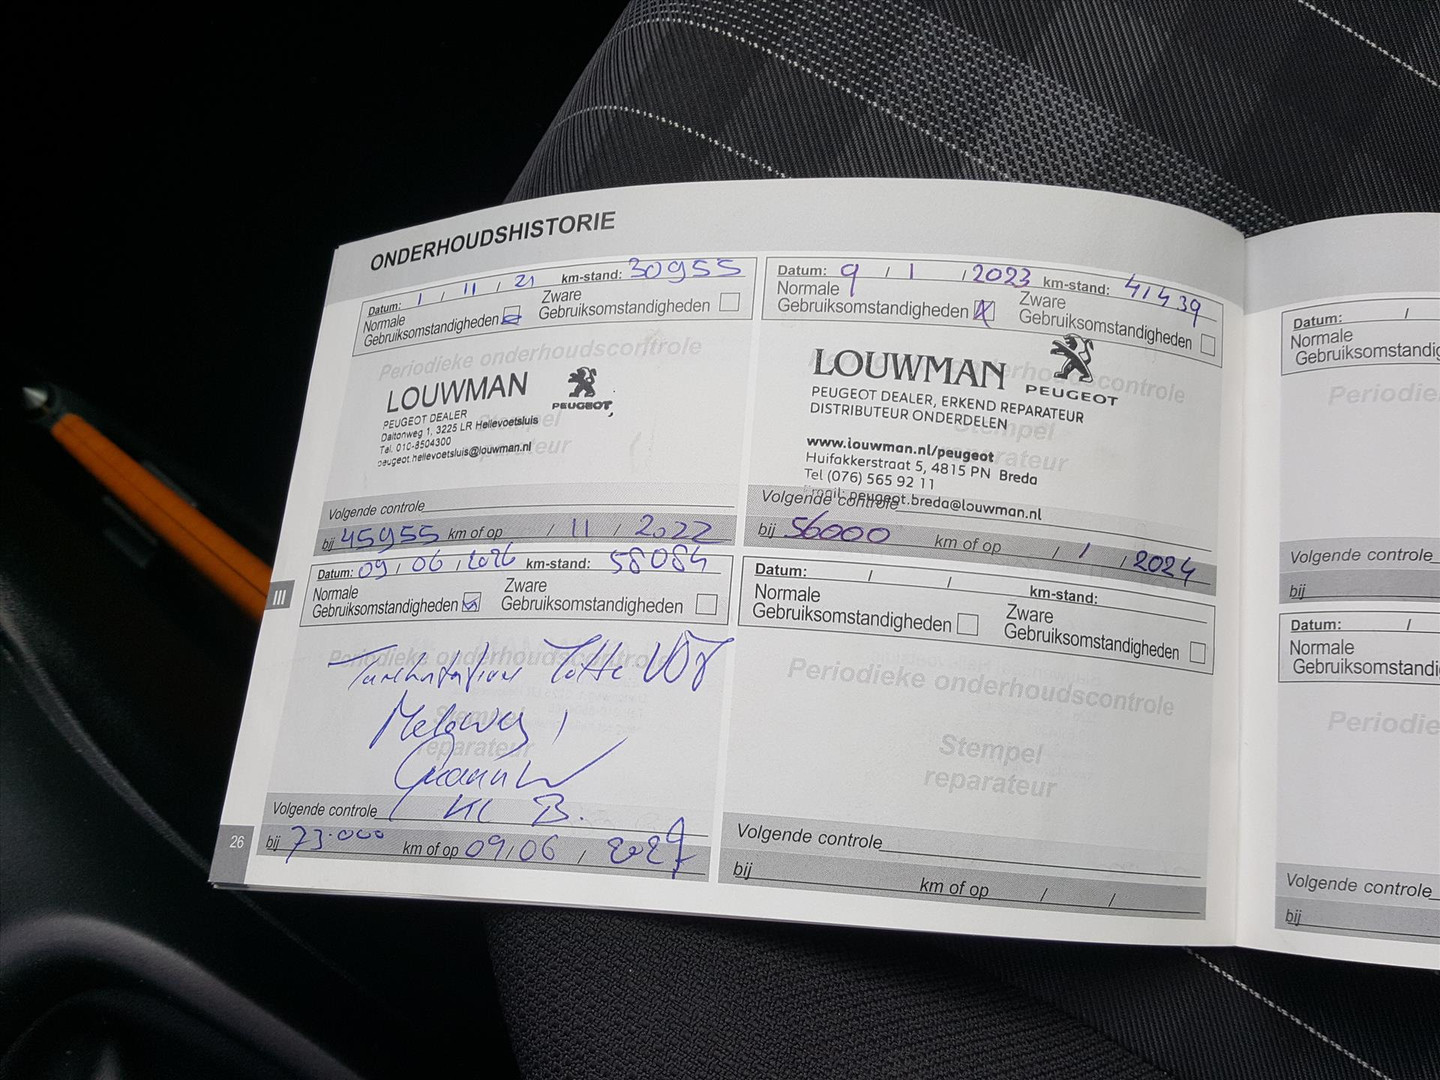 ONDERHOUDSHISTORIE
Datum: 1 / 11 / 21 km-stand: 30955
Normale
Gebruiksomstandigheden
Zware
Gebruiksomstandigheden
Periodieke onderhoudscontrole
LOUWMAN
PEUGEOT
PEUGEOT DEALER
Daltonweg 1, 3225 LR Hellevoetsluis
Tel. 010-8504300
peugeot.hellevoetsluis@louwman.nl
Volgende controle
bij 45955 km of op / 11 / 2022
Datum: 9 / 1 / 2023 km-stand: 41439
Normale
Gebruiksomstandigheden
Zware
Gebruiksomstandigheden
LOUWMAN
PEUGEOT
PEUGEOT DEALER, ERKEND REPARATEUR
DISTRIBUTEUR ONDERDELEN
www.louwman.nl/peugeot
Huifakkerstraat 5, 4815 PN Breda
Tel (076) 565 92 11
Email: peugeot.breda@louwman.nl
Volgende controle
bij 56000 km of op / 1 / 2024
Datum: 09 / 06 / 2026 km-stand: 58084
Normale
Gebruiksomstandigheden
Zware
Gebruiksomstandigheden
Periodieke onderhoudscontrole
Stempel
reparateur
Volgende controle
bij 73.000 km of op 09/06 / 2027
Datum: / / km-stand:
Normale
Gebruiksomstandigheden
Zware
Gebruiksomstandigheden
Periodieke onderhoudscontrole
Stempel
reparateur
Volgende controle
bij km of op / /
III
26
Datum: /
Normale
Gebruiksomstandig
Periodie
Volgende controle
bij
Datum: /
Normale
Gebruiksomstandig
Periodie
Volgende controle
bij